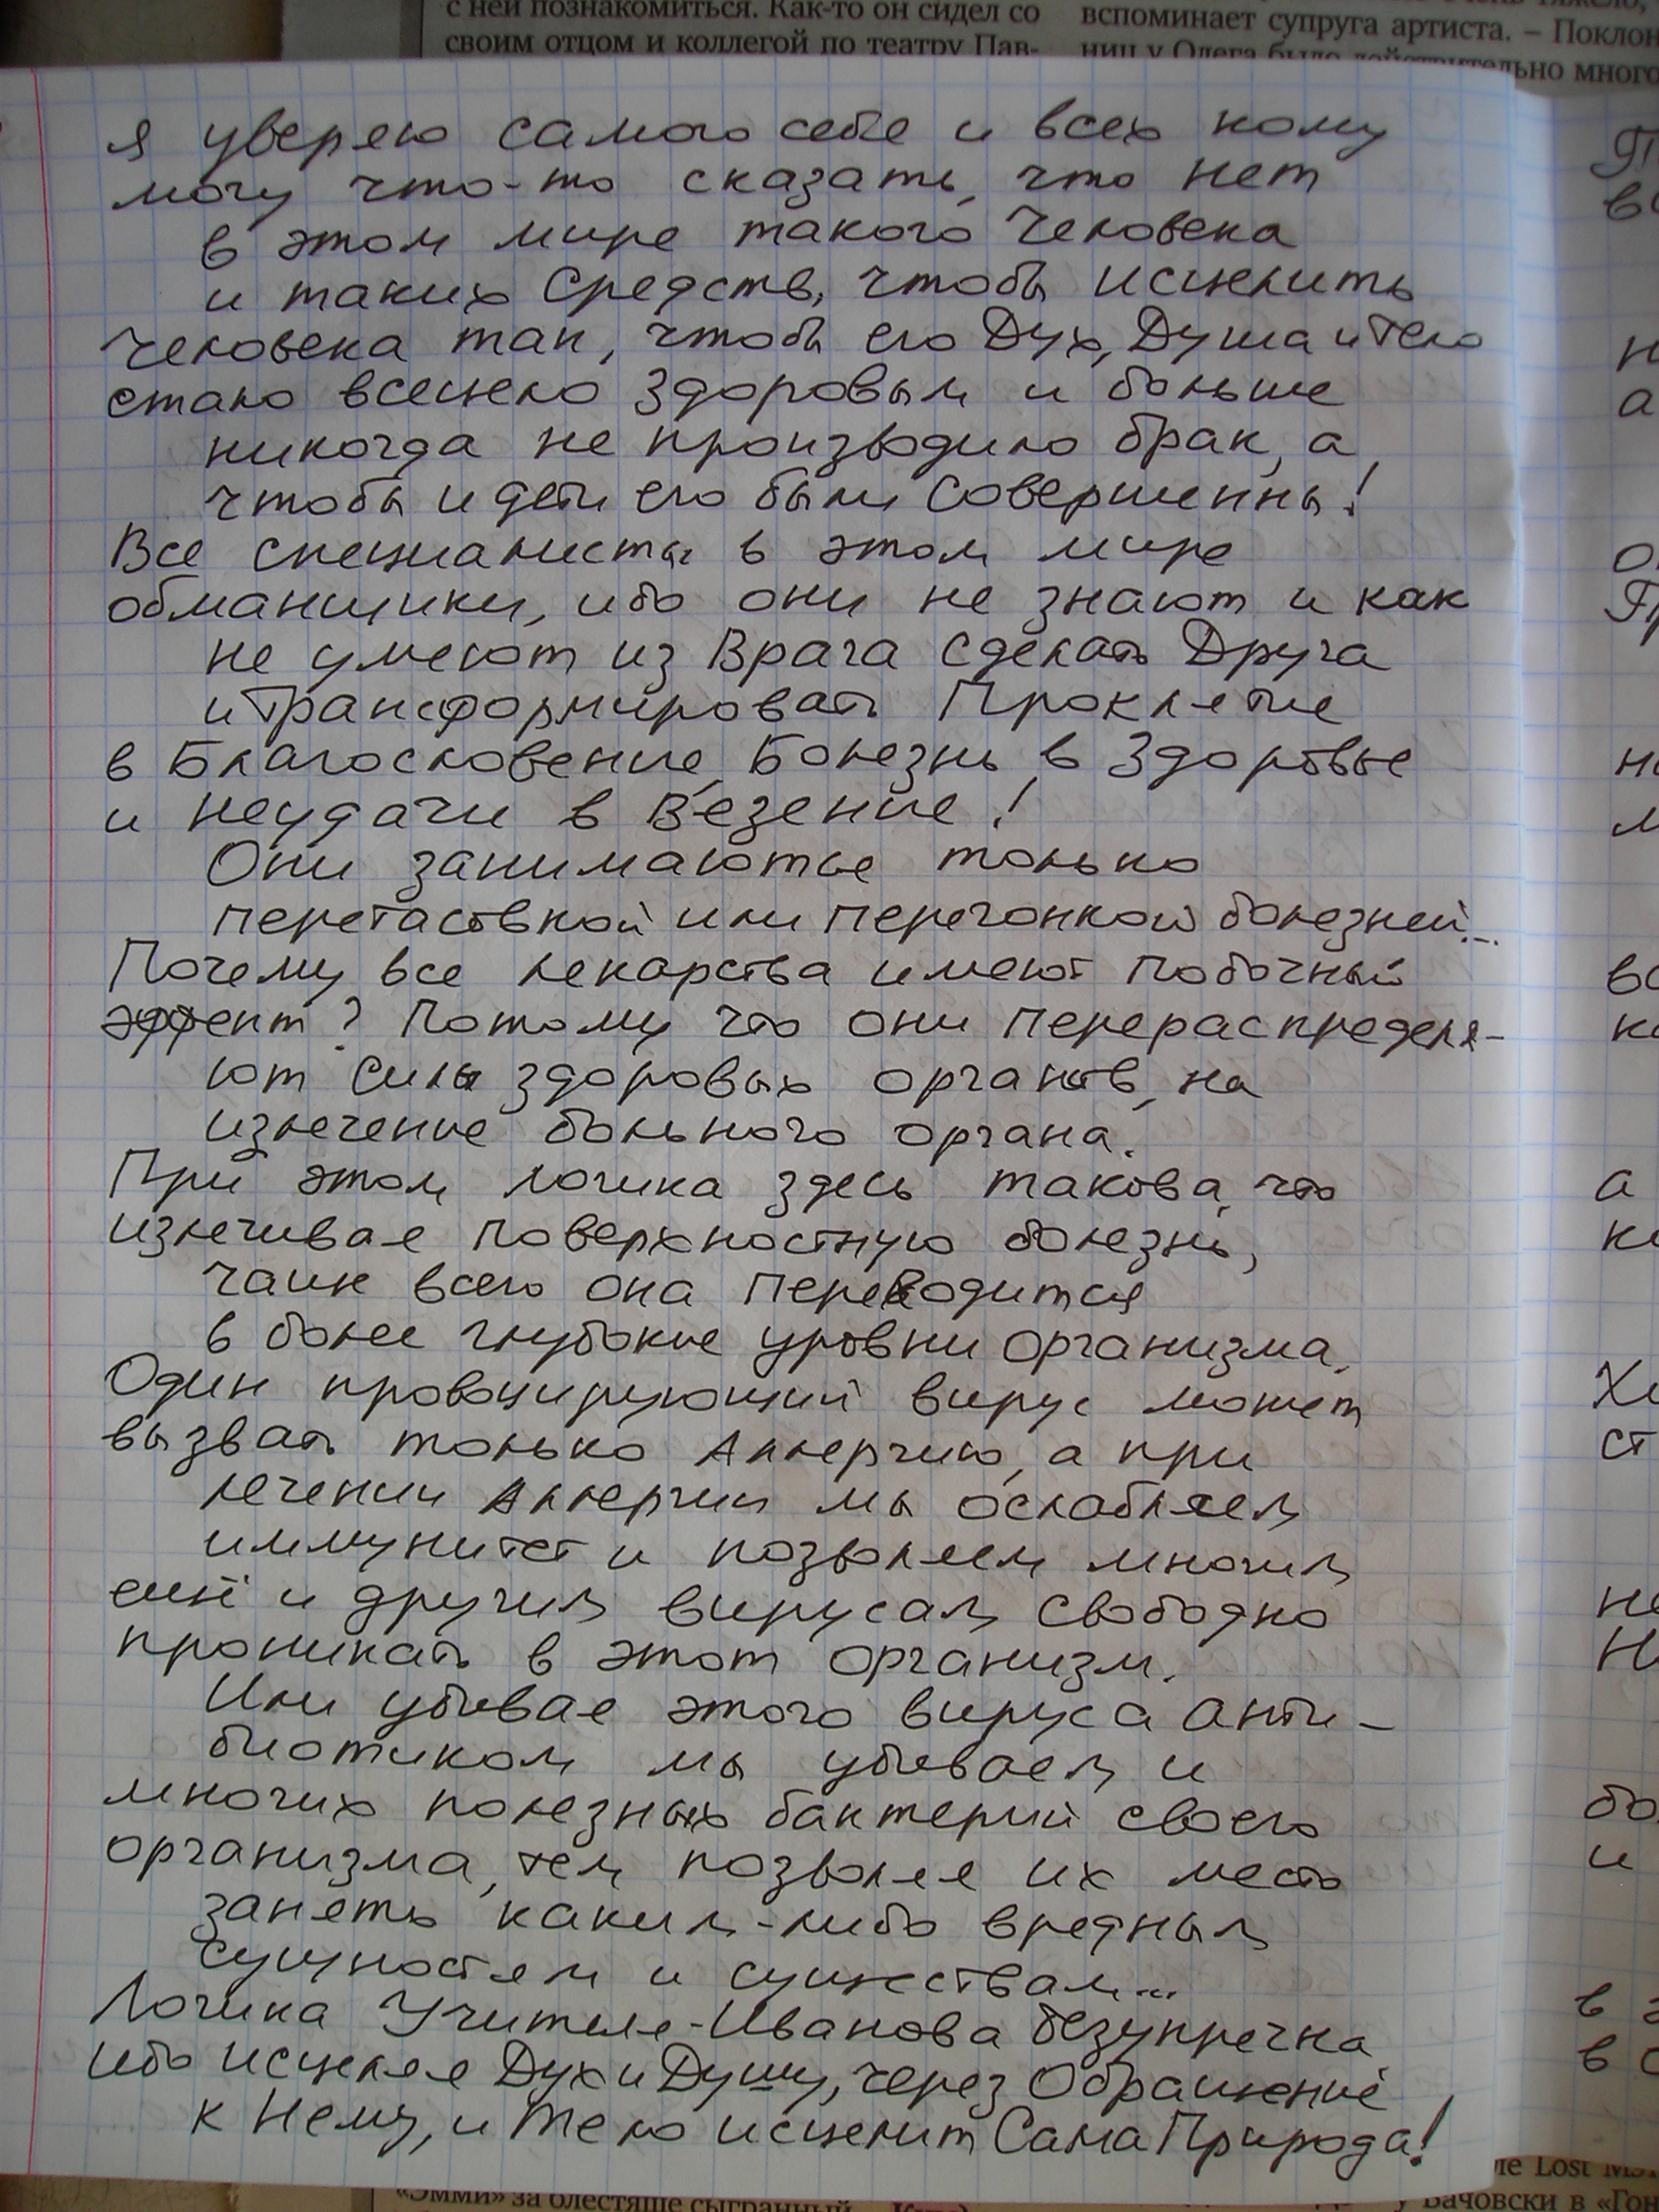 с ней познакомиться. Как-то он сидел со
своим отцом и коллегой по театру Пав-
вспоминает супруга артиста. – Поклон
ниц у Олега было действительно много
я уверяю самого себя и всех кому
могу что-то сказать, что нет
в этом мире такого Человека
и таких Средств, чтобы исцелить
Человека так, чтобы его Дух, Душа и Тело
стало всецело здоровым и больше
никогда не производило брак, а
чтобы и дети его были Совершенны!
Все специалисты в этом мире
обманщики, ибо они не знают и как
не умеют из Врага сделать Друга
и Трансформировать Проклятие
в Благословение, Болезнь в Здоровье
и неудачи в Везение!
Они занимаются только
перетасовкой или перегонкой болезней...
Почему все лекарства имеют побочный
эффект? Потому что они перераспределя-
ют силы здоровых органов, на
излечение больного органа.
При этом логика здесь такова, что
излечивая поверхностную болезнь,
чаще всего она переводится
в более глубокие уровни организма.
Один провоцирующий вирус может
вызвать только Аллергию, а при
лечении Аллергии мы ослабляем
иммунитет и позволяем многим
ещё и другим вирусам свободно
проникать в этот организм.
Или убивая этого вируса анти-
биотиком мы убиваем и
многих полезных бактерий своего
организма, тем позволяя их место
занять каким-либо вредным
сущностям и существам...
Логика Учителя-Иванова безупречна,
ибо исцеляя Дух и Душу, через Обращение
к Нему, и Тело исцелит Сама Природа!
«Эмми» за блестяще сыгранный
ле Lost
у Бачовски в «Гон